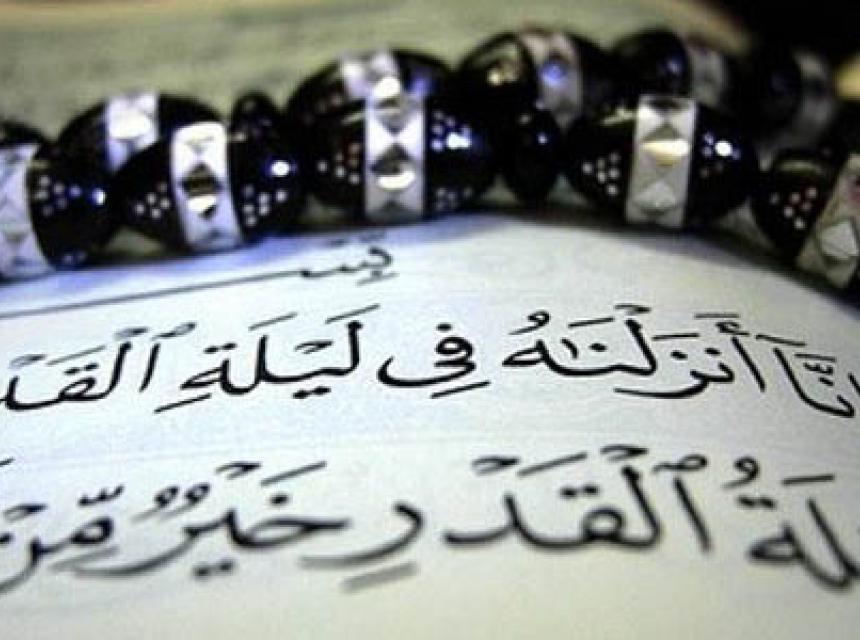 بِسْ
إِنَّآ أَنزَلْنَـٰهُ فِى لَيْلَةِ ٱلْقَدْ
لَةُ ٱلْقَدْرِ خَيْرٌ مِّنْ